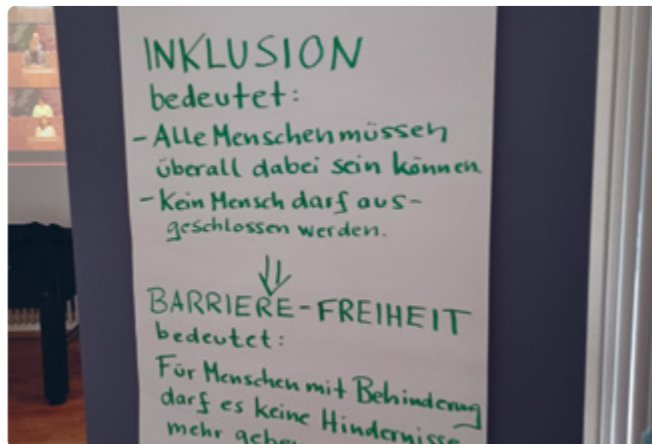 INKLUSION
bedeutet:
- Alle Menschen müssen
überall dabei sein können.
- Kein Mensch darf aus-
geschlossen werden.
⇓
BARRIERE-FREIHEIT
bedeutet:
Für Menschen mit Behinderung
darf es keine Hindernisse
mehr geben